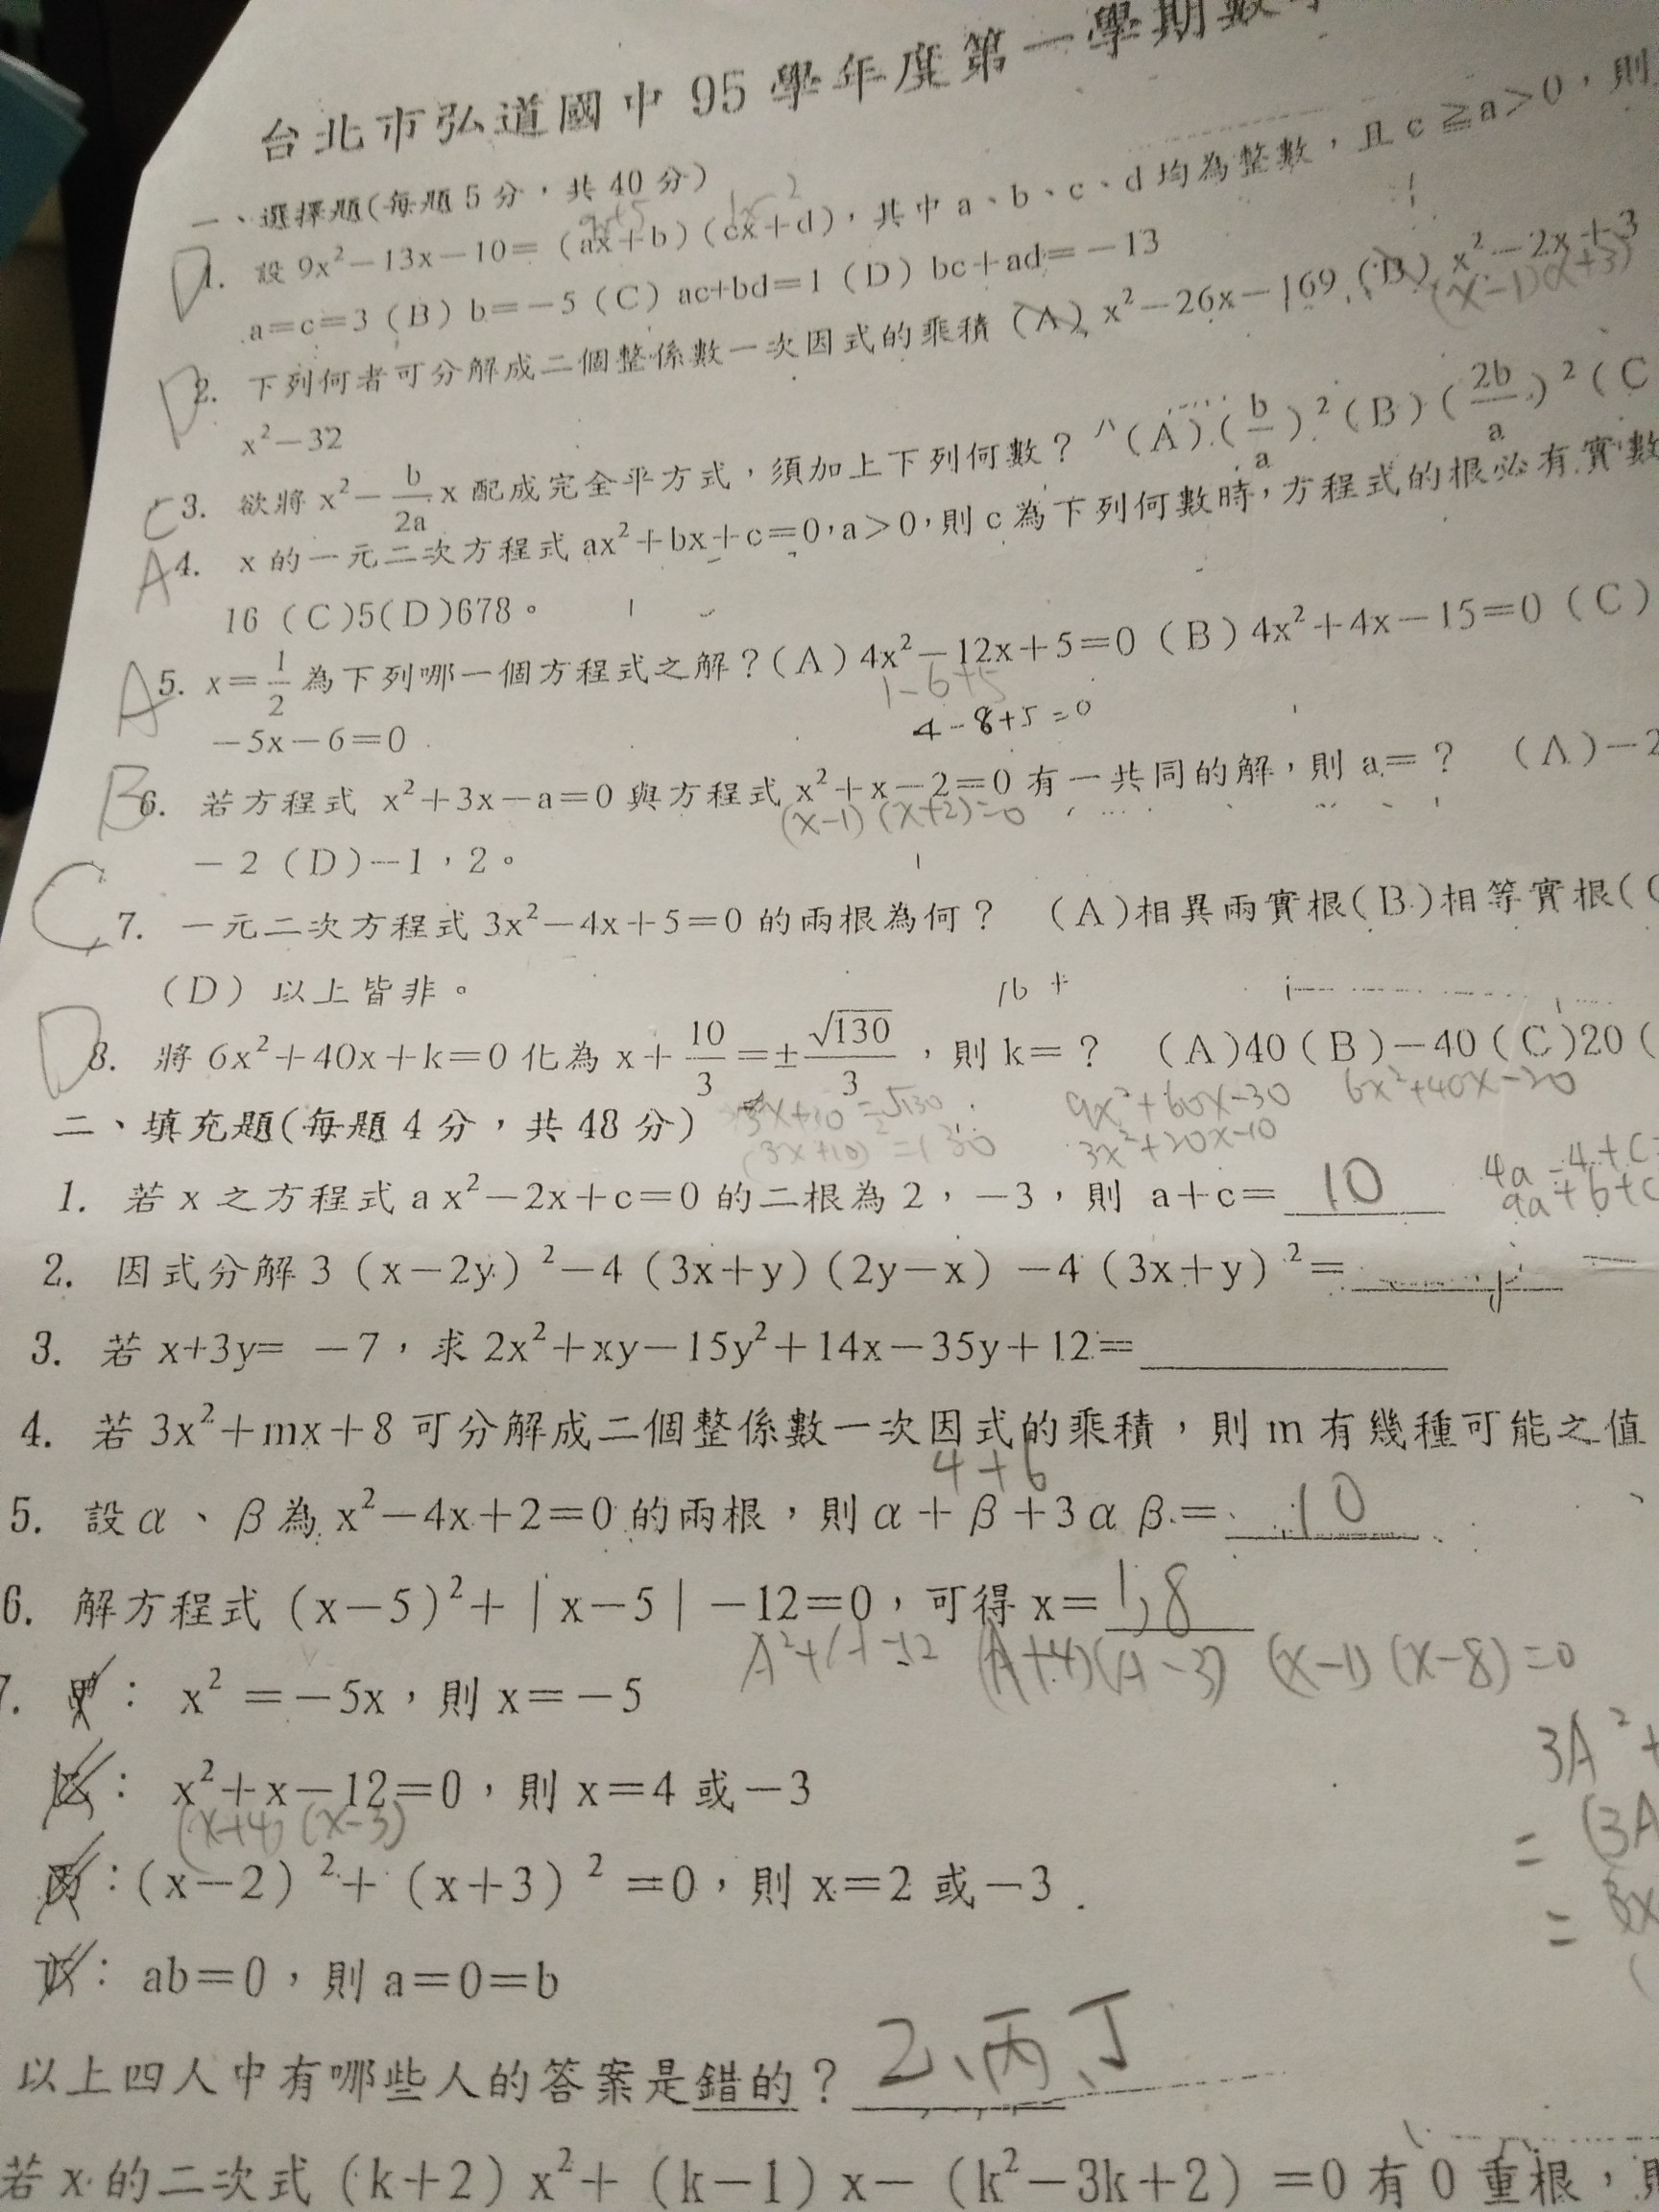 台北市弘道國中95學年度第一學期數
一、選擇題(每題5分,共40分)
D1. 設 9x²−13x−10=(ax+b)(cx+d),其中 a、b、c、d 均為整數,且 c≧a>0,則
a=c=3 (B) b=−5 (C) ac+bd=1 (D) bc+ad=−13
D2. 下列何者可分解成二個整係數一次因式的乘積 (A) x²−26x−169 (B) x²−2x+3
(x−1)(x+3)
x²−32
C3. 欲將 x²−b/2a x 配成完全平方式,須加上下列何數? (A)(b/a)² (B)(2b/a)² (C
A4. x 的一元二次方程式 ax²+bx+c=0,a>0,則 c 為下列何數時,方程式的根必有實數
16 (C)5(D)678。
A5. x=1/2 為下列哪一個方程式之解?(A) 4x²−12x+5=0 (B) 4x²+4x−15=0 (C)
1−6+5
4−8+5=0
−5x−6=0
B6. 若方程式 x²+3x−a=0 與方程式 x²+x−2=0 有一共同的解,則 a=? (A)−2
(x−1)(x+2)=0
−2 (D)−1,2。
C7. 一元二次方程式 3x²−4x+5=0 的兩根為何? (A)相異兩實根(B)相等實根(C
(D) 以上皆非。
16 +
D8. 將 6x²+40x+k=0 化為 x+10/3=±√130/3,則 k=? (A)40 (B)−40 (C)20 (
3x+10=√130 9x²+60x−30 6x²+40x−20
二、填充題(每題4分,共48分)
(3x+10)²=130 3x²+20x−10
1. 若 x 之方程式 a x²−2x+c=0 的二根為 2,−3,則 a+c= 10
4a−4+c
9a+6+c
2. 因式分解 3(x−2y)²−4(3x+y)(2y−x)−4(3x+y)²=
3. 若 x+3y= −7,求 2x²+xy−15y²+14x−35y+12=
4. 若 3x²+mx+8 可分解成二個整係數一次因式的乘積,則 m 有幾種可能之值
4+6
5. 設 α、β 為 x²−4x+2=0 的兩根,則 α+β+3αβ= 10
6. 解方程式 (x−5)²+|x−5|−12=0,可得 x= 1,8
A²+A−12 (A+4)(A−3) (x−1)(x−8)=0
7. 甲: x²=−5x,則 x=−5
3A²+
乙: x²+x−12=0,則 x=4 或−3
(x+4)(x−3)
=(3A
丙:(x−2)²+(x+3)²=0,則 x=2 或−3
=3x
丁: ab=0,則 a=0=b
以上四人中有哪些人的答案是錯的? 乙、丙、丁
若 x 的二次式 (k+2)x²+(k−1)x−(k²−3k+2)=0 有 0 重根,